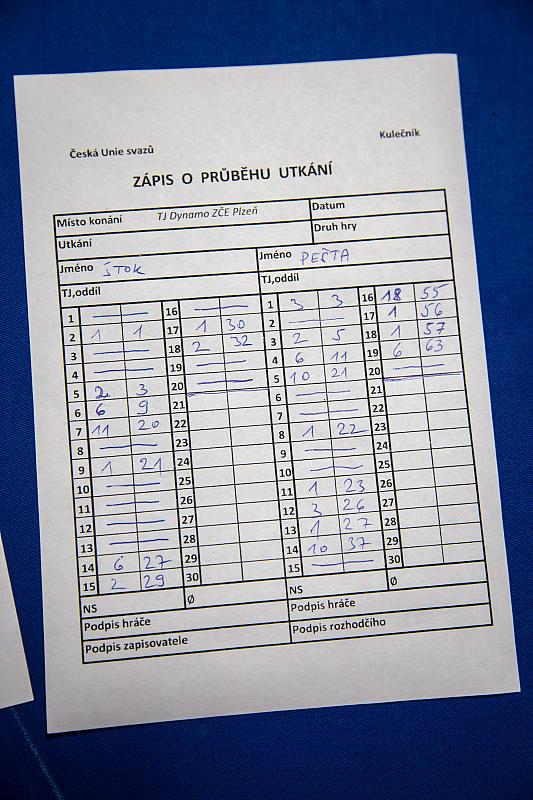 Česká Unie svazů Kulečník
ZÁPIS O PRŮBĚHU UTKÁNÍ
Místo konání TJ Dynamo ZČE Plzeň Datum
Utkání Druh hry
Jméno ŠTOK Jméno PEŠTA
TJ,oddíl TJ,oddíl
1 — — 16 — — 1 3 3 16 18 55
2 1 1 17 1 30 2 — — 17 1 56
3 — — 18 2 32 3 2 5 18 1 57
4 — — 19 — — 4 6 11 19 6 63
5 2 3 20 — — 5 10 21 20 — —
6 6 9 21 6 — — 21
7 11 20 22 7 — — 22
8 — — 23 8 1 22 23
9 1 21 24 9 — — 24
10 — — 25 10 — — 25
11 — — 26 11 1 23 26
12 — — 27 12 3 26 27
13 — — 28 13 1 27 28
14 6 27 29 14 10 37 29
15 2 29 30 15 — — 30
NS Ø NS Ø
Podpis hráče Podpis hráče
Podpis zapisovatele Podpis rozhodčího